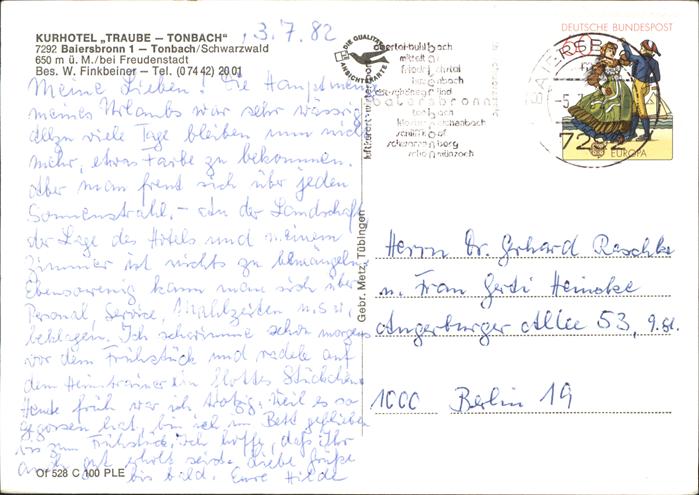 KURHOTEL „TRAUBE – TONBACH"
7292 Baiersbronn 1 – Tonbach/Schwarzwald
650 m ü. M./bei Freudenstadt
Bes. W. Finkbeiner – Tel. (0 74 42) 20 01
3.7.82
Meine Lieben! Die
meines Urlaubs war sehr wässrig
allzu viele Tage bleiben nun nicht
mehr, etwas Farbe zu bekommen.
Aber man freut sich über jeden
Sonnenstrahl. – An der Landschaft
der Lage des Hotels und meinem
Zimmer ist nichts zu bemängeln
Ebensowenig kann man sich über
Personal, Service, Mahlzeiten u.s.w.
beklagen. Ich schwimme schon morgens
vor dem Frühstück und radele auf
dem Heimtrainer ein flottes Stückchen.
Heute früh war ich trotzig, weil es so
gegossen hat, bin ich im Bett geblieben
bis zum Frühstück. Ich hoffe, daß Ihr
auch gut erholt seid. Liebe Grüße
bis bald. Eure Hilde
Of 528 C 100 PLE
Gebr. Metz, Tübingen
DIE QUALITÄTS
ANSICHTSKARTE
luftkurort
obertal-buhlbach
mitteltal
friedrichstal
baiersbronn
tonbach
klosterreichenbach
schwarzenberg
schönmünzach
BAIERSB
-5.
7292
DEUTSCHE BUNDESPOST
60
EUROPA
Herrn Dr. Gerhard Raschke
u. Frau Gerti Heincke
Angerburger Allee 53, 9. St.
1000 Berlin 19